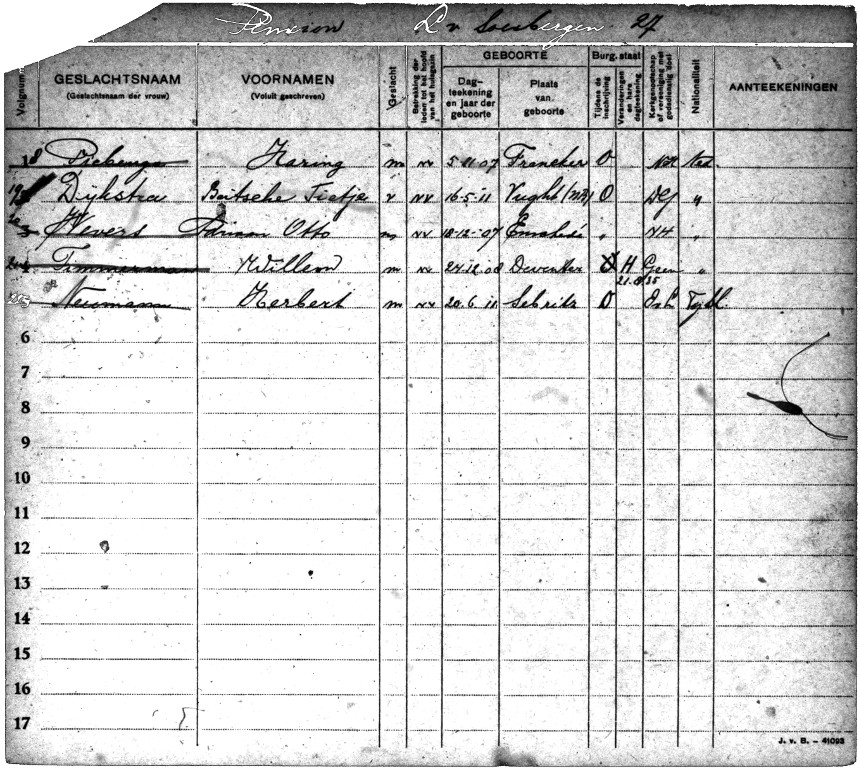 Pension L v Soesbergen 27
Volgnum
GESLACHTSNAAM
(Geslachtsnaam der vrouw)
VOORNAMEN
(Voluit geschreven)
Geslacht
Betrekking der leden tot het hoofd van het huisgezin
GEBOORTE
Dag-teekening en jaar der geboorte
Plaats van geboorte
Burg. staat
Tijdens de inschrijving
Veranderingen en hare dagteekening
Kerkgenootschap of vereeniging met godsdienstig doel
Nationaliteit
AANTEEKENINGEN
18 Piebenga Haring m nv 5-11 07 Franeker O NH Ned.
19 Dijkstra Baitseke Tietje v nv 16-5-11 Vught (NB) O DG "
3 Wevers Adriaan Otto m nv 18-12-07 Enschedé " NH "
Timmerman Willem m nv 24.12.08 Deventer O H Geen "
21.8/35
Neumann Herbert m nv 20.6 11 Sebnitz O Ev L
6
7
8
9
10
11
12
13
14
15
16
17
J. v. B. – 41093